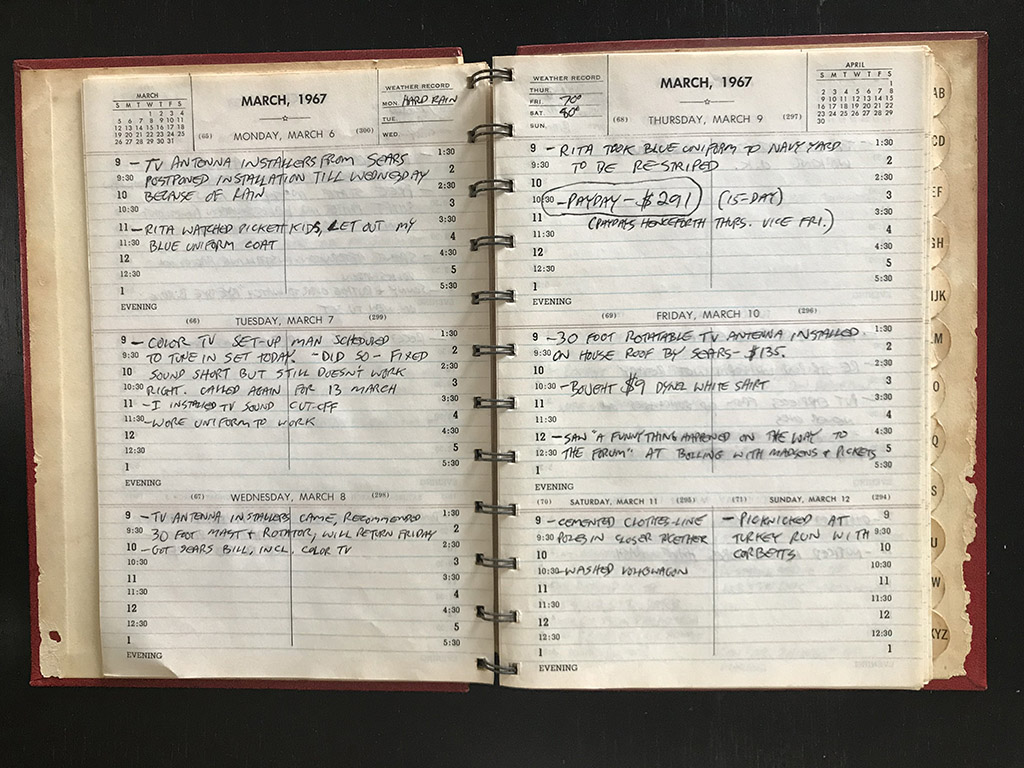 MARCH
S M T W T F S
1 2 3 4
5 6 7 8 9 10 11
12 13 14 15 16 17 18
19 20 21 22 23 24 25
26 27 28 29 30 31
MARCH, 1967
WEATHER RECORD
MON. HARD RAIN
TUE.
WED.
(65) MONDAY, MARCH 6 (300)
9 - TV ANTENNA INSTALLERS FROM SEARS 1:30
9:30 POSTPONED INSTALLATION TILL WEDNESDAY 2
10 BECAUSE OF RAIN 2:30
10:30 3
11 - RITA WATCHED PICKETT KIDS, LET OUT MY 3:30
11:30 BLUE UNIFORM COAT 4
12 4:30
12:30 5
1 5:30
EVENING
(66) TUESDAY, MARCH 7 (299)
9 - COLOR TV SET-UP MAN SCHEDULED 1:30
9:30 TO TUNE IN SET TODAY. - DID SO - FIXED 2
10 SOUND SHORT BUT STILL DOESN'T WORK 2:30
10:30 RIGHT. CALLED AGAIN FOR 13 MARCH 3
11 - I INSTALLED TV SOUND CUT-OFF 3:30
11:30 - WORE UNIFORM TO WORK 4
12 4:30
12:30 5
1 5:30
EVENING
(67) WEDNESDAY, MARCH 8 (298)
9 - TV ANTENNA INSTALLERS CAME, RECOMMENDED 1:30
9:30 30 FOOT MAST & ROTATOR, WILL RETURN FRIDAY 2
10 - GOT SEARS BILL, INCL. COLOR TV 2:30
10:30 3
11 3:30
11:30 4
12 4:30
12:30 5
1 5:30
EVENING
WEATHER RECORD
THUR.
FRI. 70°
SAT. 80°
SUN.
MARCH, 1967
APRIL
S M T W T F S
1
2 3 4 5 6 7 8
9 10 11 12 13 14 15
16 17 18 19 20 21 22
23 24 25 26 27 28 29
30
(68) THURSDAY, MARCH 9 (297)
9 - RITA TOOK BLUE UNIFORM TO NAVY YARD 1:30
9:30 TO BE RE-STRIPED 2
10 2:30
10:30 - PAYDAY - $291 (15-DAY) 3
11 (PAYDAYS HENCEFORTH THURS. VICE FRI.) 3:30
11:30 4
12 4:30
12:30 5
1 5:30
EVENING
(69) FRIDAY, MARCH 10 (296)
9 - 30 FOOT ROTATABLE TV ANTENNA INSTALLED 1:30
9:30 ON HOUSE ROOF BY SEARS - $135. 2
10 2:30
10:30 - BOUGHT $9 WHITE SHIRT 3
11 3:30
11:30 4
12 - SAW "A FUNNY THING HAPPENED ON THE WAY TO 4:30
12:30 THE FORUM" AT BOLLING WITH MADSENS & PICKETTS 5
1 5:30
EVENING
(70) SATURDAY, MARCH 11 (295) (71) SUNDAY, MARCH 12 (294)
9 - CEMENTED CLOTHES-LINE - PICKNICKED AT 9
9:30 POLES IN CLOSER TOGETHER TURKEY RUN WITH 9:30
10 CORBETTS 10
10:30 - WASHED VOLKSWAGON 10:30
11 11
11:30 11:30
12 12
12:30 12:30
1 1
EVENING
AB
CD
EF
GH
IJK
LM
O
Q
S
U
W
XYZ